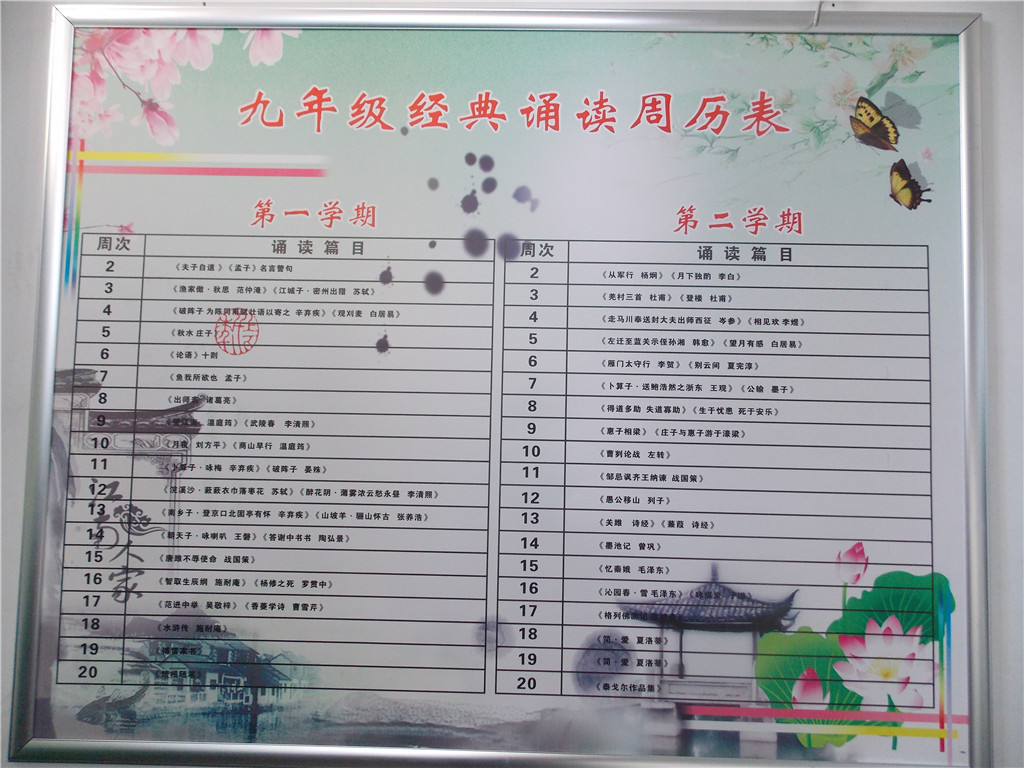 九年级经典诵读周历表
第一学期
周次 诵读篇目
2 《夫子自道》《孟子》名言警句
3 《渔家傲·秋思 范仲淹》《江城子·密州出猎 苏轼》
4 《破阵子 为陈同甫赋壮语以寄之 辛弃疾》《观刈麦 白居易》
5 《秋水 庄子》
6 《论语》十则
7 《鱼我所欲也 孟子》
8 《出师表 诸葛亮》
9 温庭筠》《武陵春 李清照》
10 《月夜 刘方平》《商山早行 温庭筠》
11 《卜算子·咏梅 辛弃疾》《破阵子 晏殊》
12 《浣溪沙·蔌蔌衣巾落枣花 苏轼》《醉花阴·薄雾浓云愁永昼 李清照》
13 《南乡子·登京口北固亭有怀 辛弃疾》《山坡羊·骊山怀古 张养浩》
14 《朝天子·咏喇叭 王磐》《答谢中书书 陶弘景》
15 《唐雎不辱使命 战国策》
16 《智取生辰纲 施耐庵》《杨修之死 罗贯中》
17 《范进中举 吴敬梓》《香菱学诗 曹雪芹》
18 《水浒传 施耐庵》
19 《傅雷家书》
20
第二学期
周次 诵读篇目
2 《从军行 杨炯》《月下独酌 李白》
3 《羌村三首 杜甫》《登楼 杜甫》
4 《走马川奉送封大夫出师西征 岑参》《相见欢 李煜》
5 《左迁至蓝关示侄孙湘 韩愈》《望月有感 白居易》
6 《雁门太守行 李贺》《别云间 夏完淳》
7 《卜算子·送鲍浩然之浙东 王观》《公输 墨子》
8 《得道多助 失道寡助》《生于忧患 死于安乐》
9 《惠子相梁》《庄子与惠子游于濠梁》
10 《曹刿论战 左转》
11 《邹忌讽齐王纳谏 战国策》
12 《愚公移山 列子》
13 《关雎 诗经》《蒹葭 诗经》
14 《墨池记 曾巩》
15 《忆秦娥 毛泽东》
16 《沁园春·雪 毛泽东》
17 《格列佛游记
18 《简·爱 夏洛蒂》
19 《简·爱 夏洛蒂》
20 《泰戈尔作品集》
江南人家